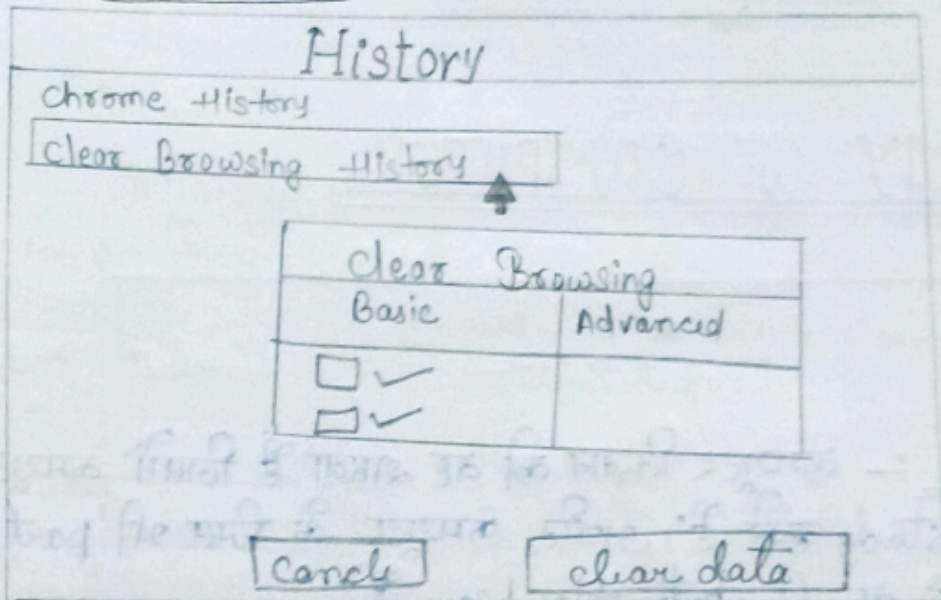 History
Chrome History
Clear Browsing History
Clear Browsing
Basic Advanced
Cancle clear data